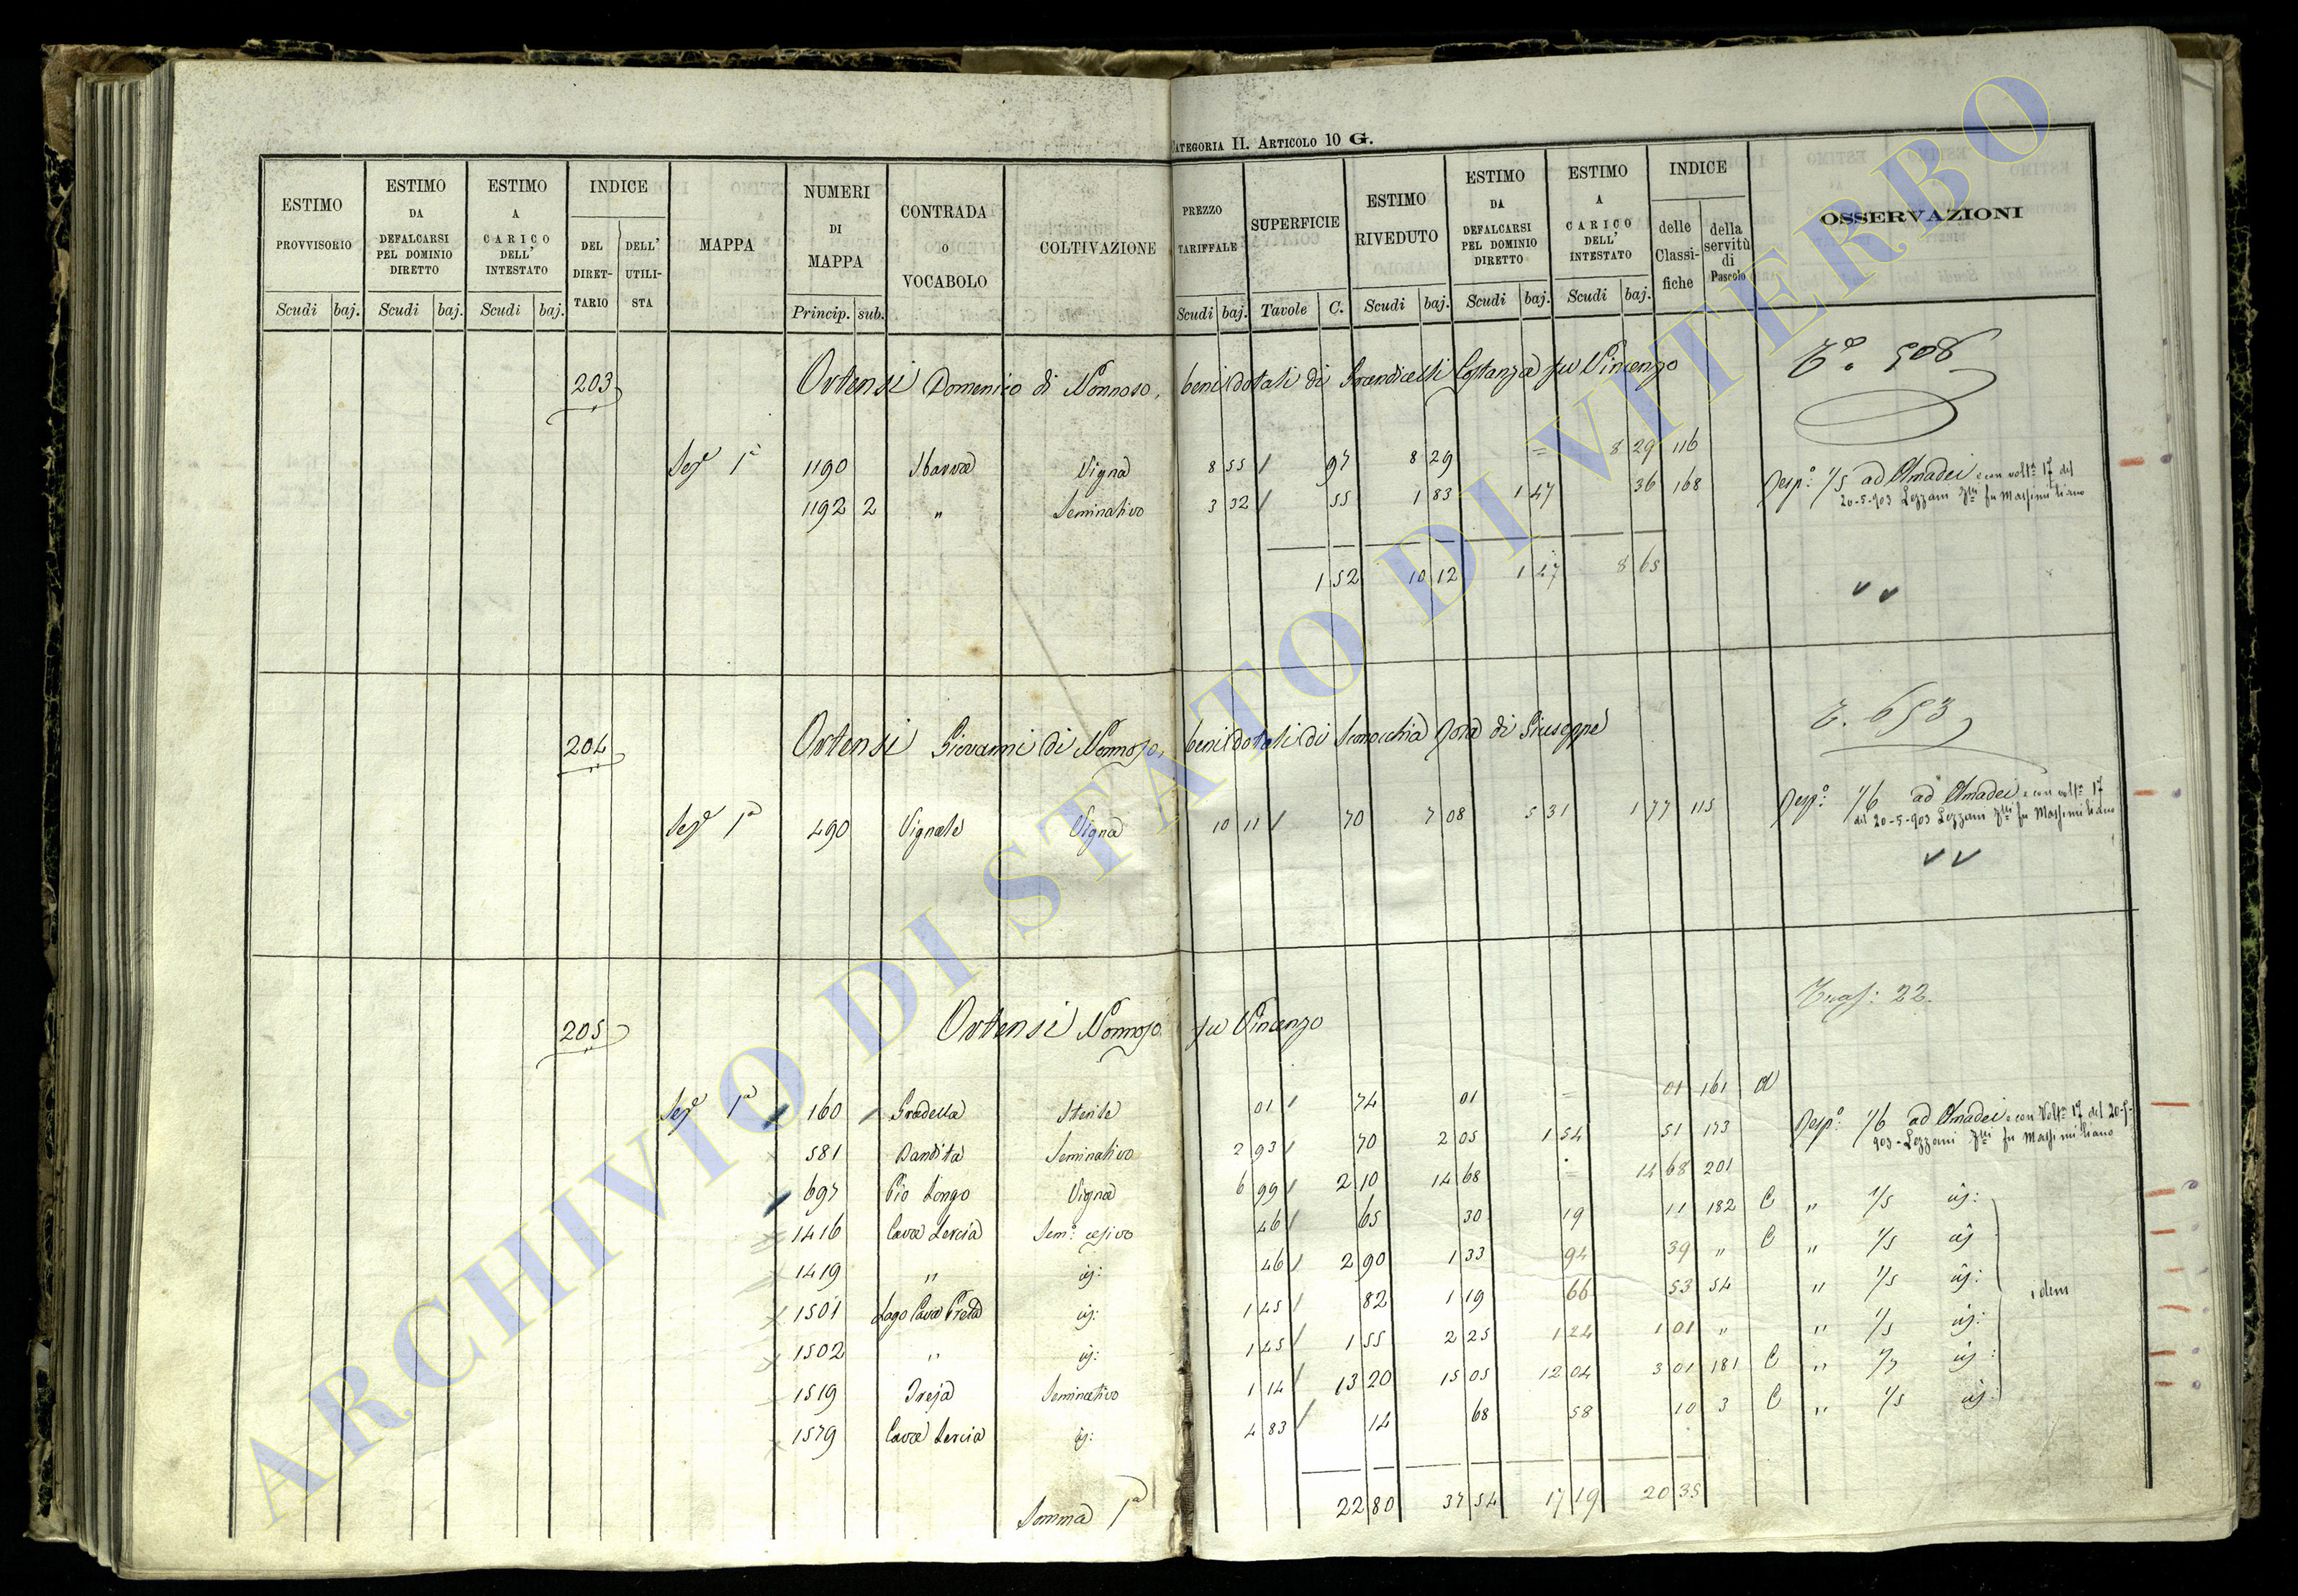 CATEGORIA II. ARTICOLO 10 G.
ESTIMO PROVVISORIO
ESTIMO DA DEFALCARSI PEL DOMINIO DIRETTO
ESTIMO A CARICO DELL' INTESTATO
INDICE
DEL DIRETTARIO
DELL' UTILISTA
MAPPA
NUMERI DI MAPPA
CONTRADA o VOCABOLO
COLTIVAZIONE
PREZZO TARIFFALE
SUPERFICIE
ESTIMO RIVEDUTO
ESTIMO DA DEFALCARSI PEL DOMINIO DIRETTO
ESTIMO A CARICO DELL' INTESTATO
INDICE
delle Classifiche
della servitù di Pascolo
OSSERVAZIONI
Scudi baj. Scudi baj. Scudi baj. Princip. sub. Scudi baj. Tavole C. Scudi baj. Scudi baj. Scudi baj.
203 Ortensi Domenico di Nonnoso, beni dotali di Costanza fu Vincenzo T.º 508
Sez.e 1ª 1190 Vigna 8 55 97 8 29 = 8 29 116
1192 2 " Seminativo 3 32 55 1 83 1 47 36 168 Risp.º 1/5 ad Amadei e con volt.ª 17 del
20-5-903 Lezzani fu Massimiliano
1 52 10 12 1 47 8 65
204 Ortensi Giovanni di Nonnoso, beni dotali di di Giuseppe T. 653
Sez.e 1ª 490 Vignale Vigna 10 11 70 7 08 5 31 1 77 115 Risp.º 1/6 ad Amadei e con volt.ª 17
del 20-5-903 Lezzani fu Massimiliano
205 Ortensi Nonnoso fu Vincenzo 22
Sez.e 1ª 160 Gradella Sterile 01 74 01 = 01 161
581 Bandita Seminativo 2 93 70 2 05 1 54 51 173 Risp.º 1/6 ad Amadei e con Volt.ª 17 del 20-5-
903 - Lezzani fu Massimiliano
697 Pio Longo Vigna 6 99 2 10 14 68 = 14 68 201
1416 Cava Lercia Sem.º cesivo 46 65 30 19 11 182 C " 1/5 id:
1419 " id: 46 2 90 1 33 94 39 " C " 1/5 id
1501 Lago Cava Prata id: 1 45 82 1 19 66 53 54 " 1/5 id: idem
1502 " id: 1 45 1 55 2 25 1 24 1 01 " " 1/5 id:
1519 Treja Seminativo 1 14 13 20 15 05 12 04 3 01 181 C " id:
1579 Cava Lercia id: 4 83 14 68 58 10 3 C " 1/5 id:
Somma 1ª 22 80 37 54 17 19 20 35
ARCHIVIO DI STATO DI VITERBO